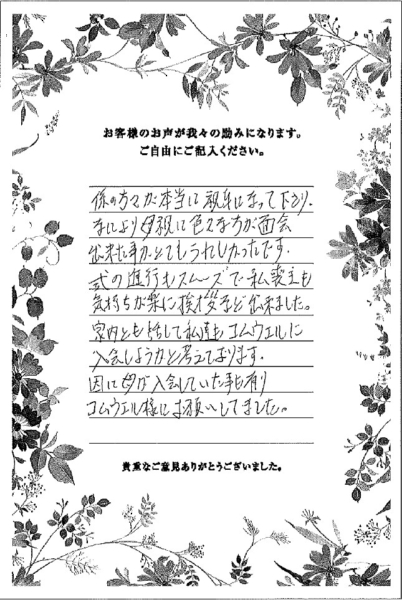 お客様のお声が我々の励みになります。
ご自由にご記入ください。
係の方々が本当に親身になって下さり、
なにより母親に色々な方が面会
出来た事がとてもうれしかったです。
式の進行もスムーズで私喪主も
気持ちが楽に挨拶など出来ました。
家内とも話して私達もコムウエルに
入会しようかと考えております。
因に母が入会していた事も有り
コムウエル様にお願いしてました。
貴重なご意見ありがとうございました。